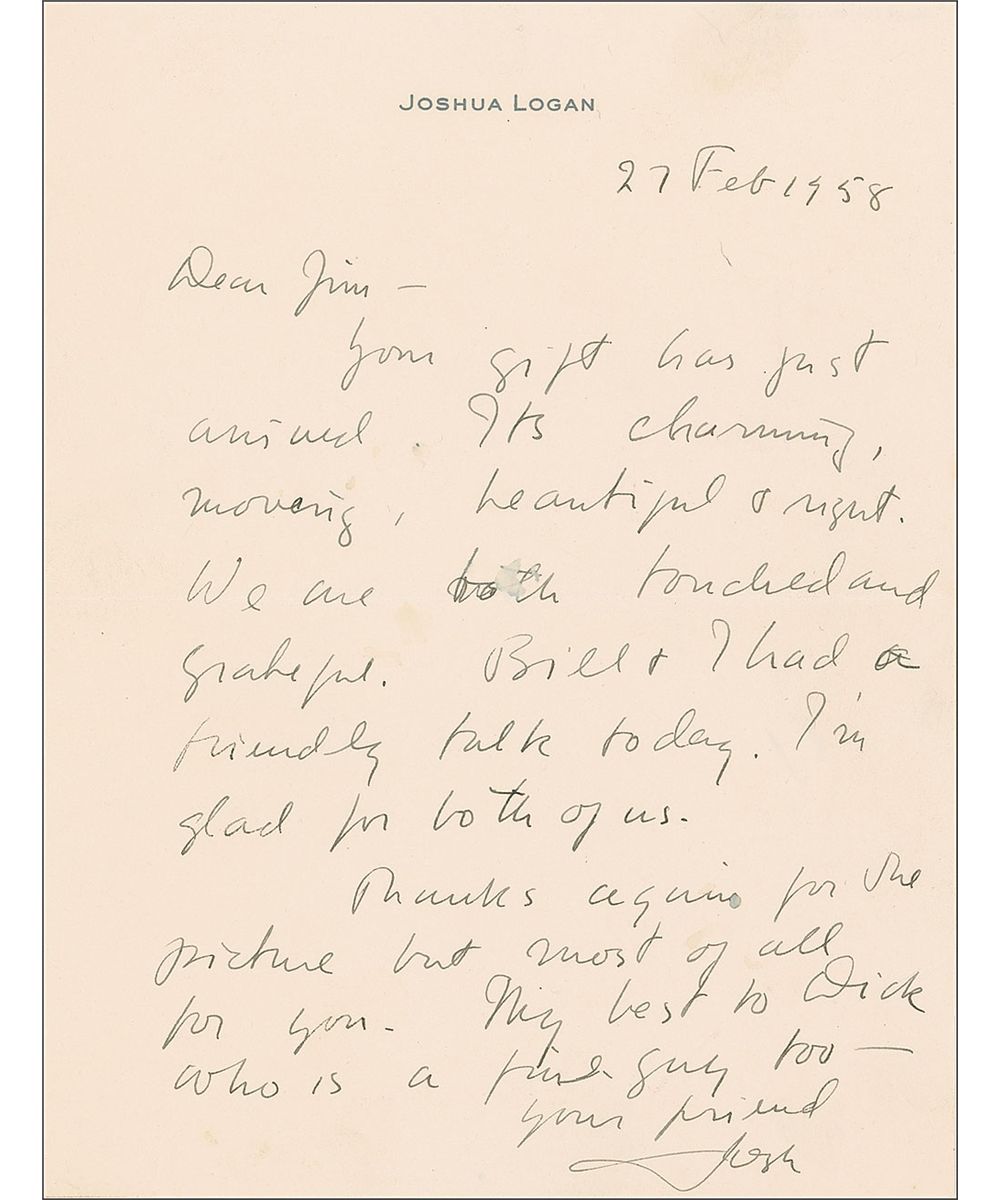 JOSHUA LOGAN
27 Feb 1958
Dear Jim —
Your gift has just
arrived. Its charming,
moving, beautiful & right.
We are both touched and
grateful. Bill & I had a
friendly talk today. I'm
glad for both of us.
Thanks again for the
picture but most of all
for you. My best to Dick
who is a fine guy too —
your friend
Josh